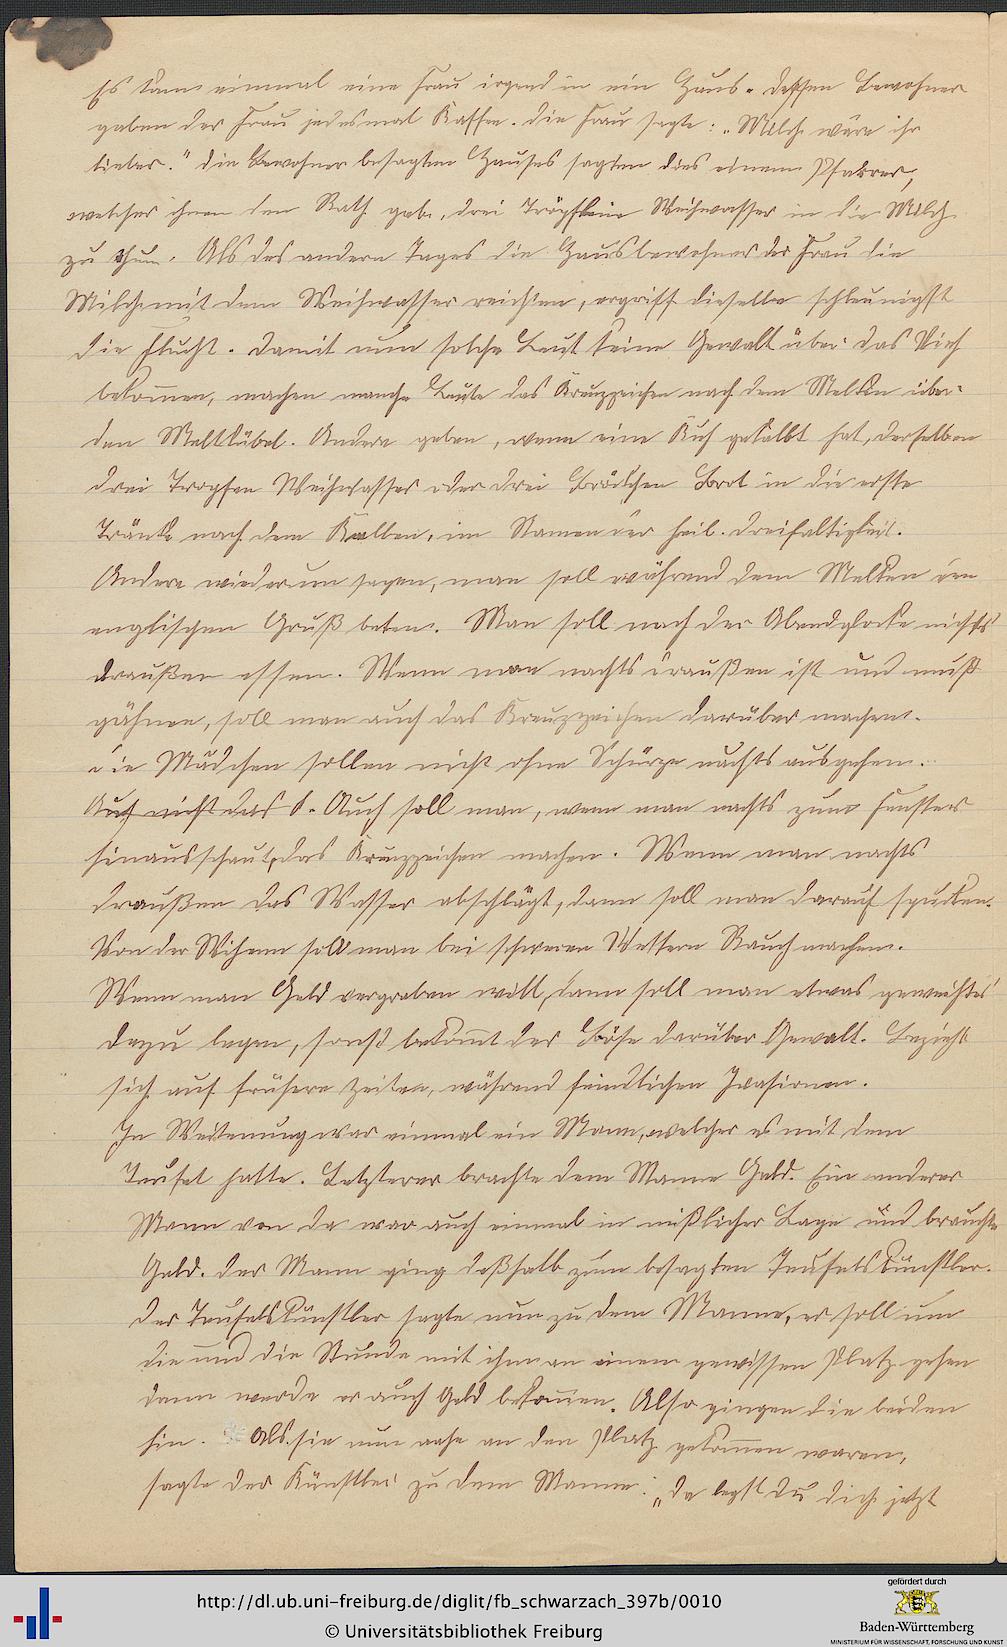 Es kam einmal eine Frau irgend in ein Haus. Dessen Bewohner
gaben der Frau jedesmal Kaffee. Die Frau sagte: „Milch wäre ihr
lieber." Die Bewohner besagten Hauses sagten dies einem Pfarrer,
welcher ihnen den Rath gab, drei Tröpflein Weihwasser in die Milch
zu thun. Als des andern Tages die Hausbewohner der Frau die
Milch mit dem Weihwasser reichten, ergriff dieselbe schleunigst
die Flucht. Damit nun solche Leut keine Gewalt über das Vieh
bekom̅en, machen manche Leute das Kreuzzeichen nach dem Melken über
den Melkkübel. Andere geben, wenn eine Kuh gekalbt hat, derselben
drei Tropfen Weihwasser oder drei Bröckchen Brot in die erste
Tränke nach dem Kalben, im Namen der heil. Dreifaltigkeit.
Andere wiederum sagen, man soll während dem Melken den
englischen Gruß beten. Man soll nach der Abendglocke nichts
draußen essen. Wenn man nachts draußen ist und muß
gähnen, soll man auch das Kreuzzeichen darüber machen.
Die Mädchen sollen nicht ohne Schürze nachts ausgehen.
Auch nicht das k. Auch soll man, wenn man nachts zum Fenster
hinausschaut, das Kreuzzeichen machen. Wenn man nachts
draußen das Wasser abschlägt, dann soll man darauf spucken.
Von der Wihenn soll man bei schweren Wettern Rauch machen.
Wenn man Geld vergraben will, dann soll man etwas geweihtes
dazu legen, sonst bekom̅t der Böse darüber Gewalt. Bezieht
sich auf frühere Zeiten, während feindlichen Ivasionen.
In Weitenung war einmal ein Mann, welcher es mit dem
Teufel hatte. Letzterer brachte dem Manne Geld. Ein anderer
Mann von da war auch einmal in mißlicher Lage und brauchte
Geld. Der Mann ging deßhalb zum besagten Teufelskünstler.
Der Teufelskünstler sagte nun zu dem Manne, er soll um
die und die Stunde mit ihm an einem gewissen Platz gehen
dann werde er auch Geld bekom̅en. Also gingen die beiden
hin. Als sie nun nahe an den Platz gekom̅en waren,
sagte der Künstler zu dem Manne: „Da legst du dich jetzt
http://dl.ub.uni-freiburg.de/diglit/fb_schwarzach_397b/0010
© Universitätsbibliothek Freiburg
gefördert durch
Baden-Württemberg
MINISTERIUM FÜR WISSENSCHAFT, FORSCHUNG UND KUNST